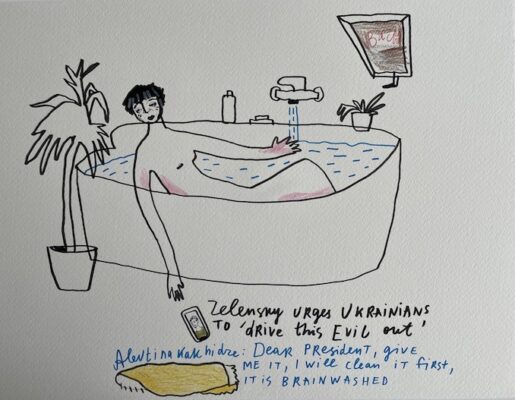 Zelensky urges UKRAINIANS
TO 'drive this Evil out'
Alevtina Kakhidze: Dear President, give
ME IT, I will clean it first,
IT IS BRAINWASHED